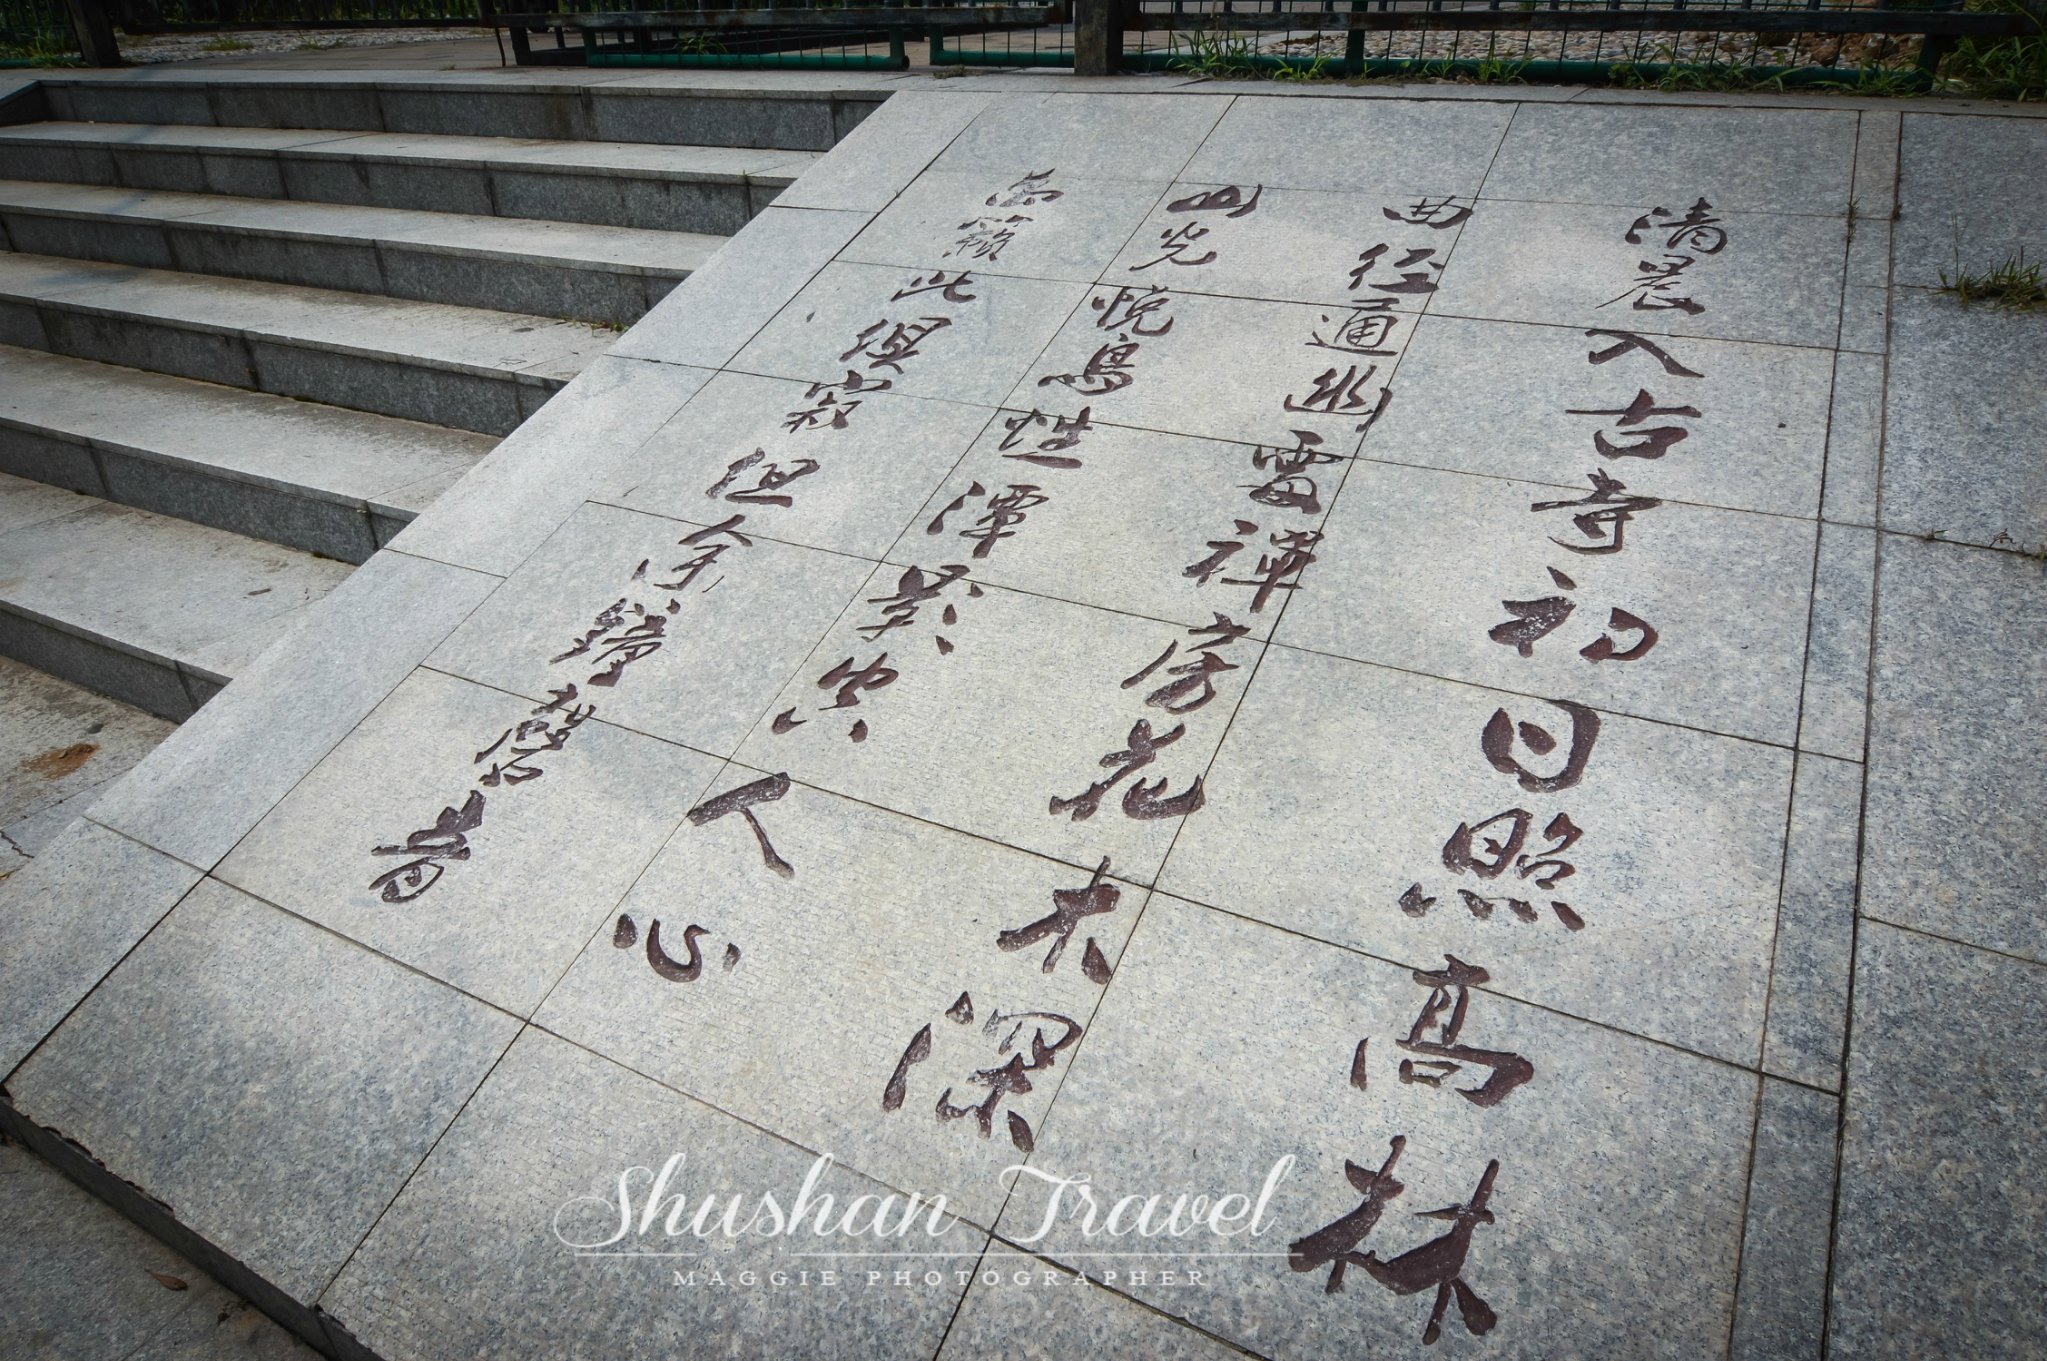 清晨入古寺初日照高林
曲径通幽處禪房花木深
山光悦鳥性潭影空人心
萬籟此俱寂但余鐘磬音
Shushan Travel
MAGGIE PHOTOGRAPHER